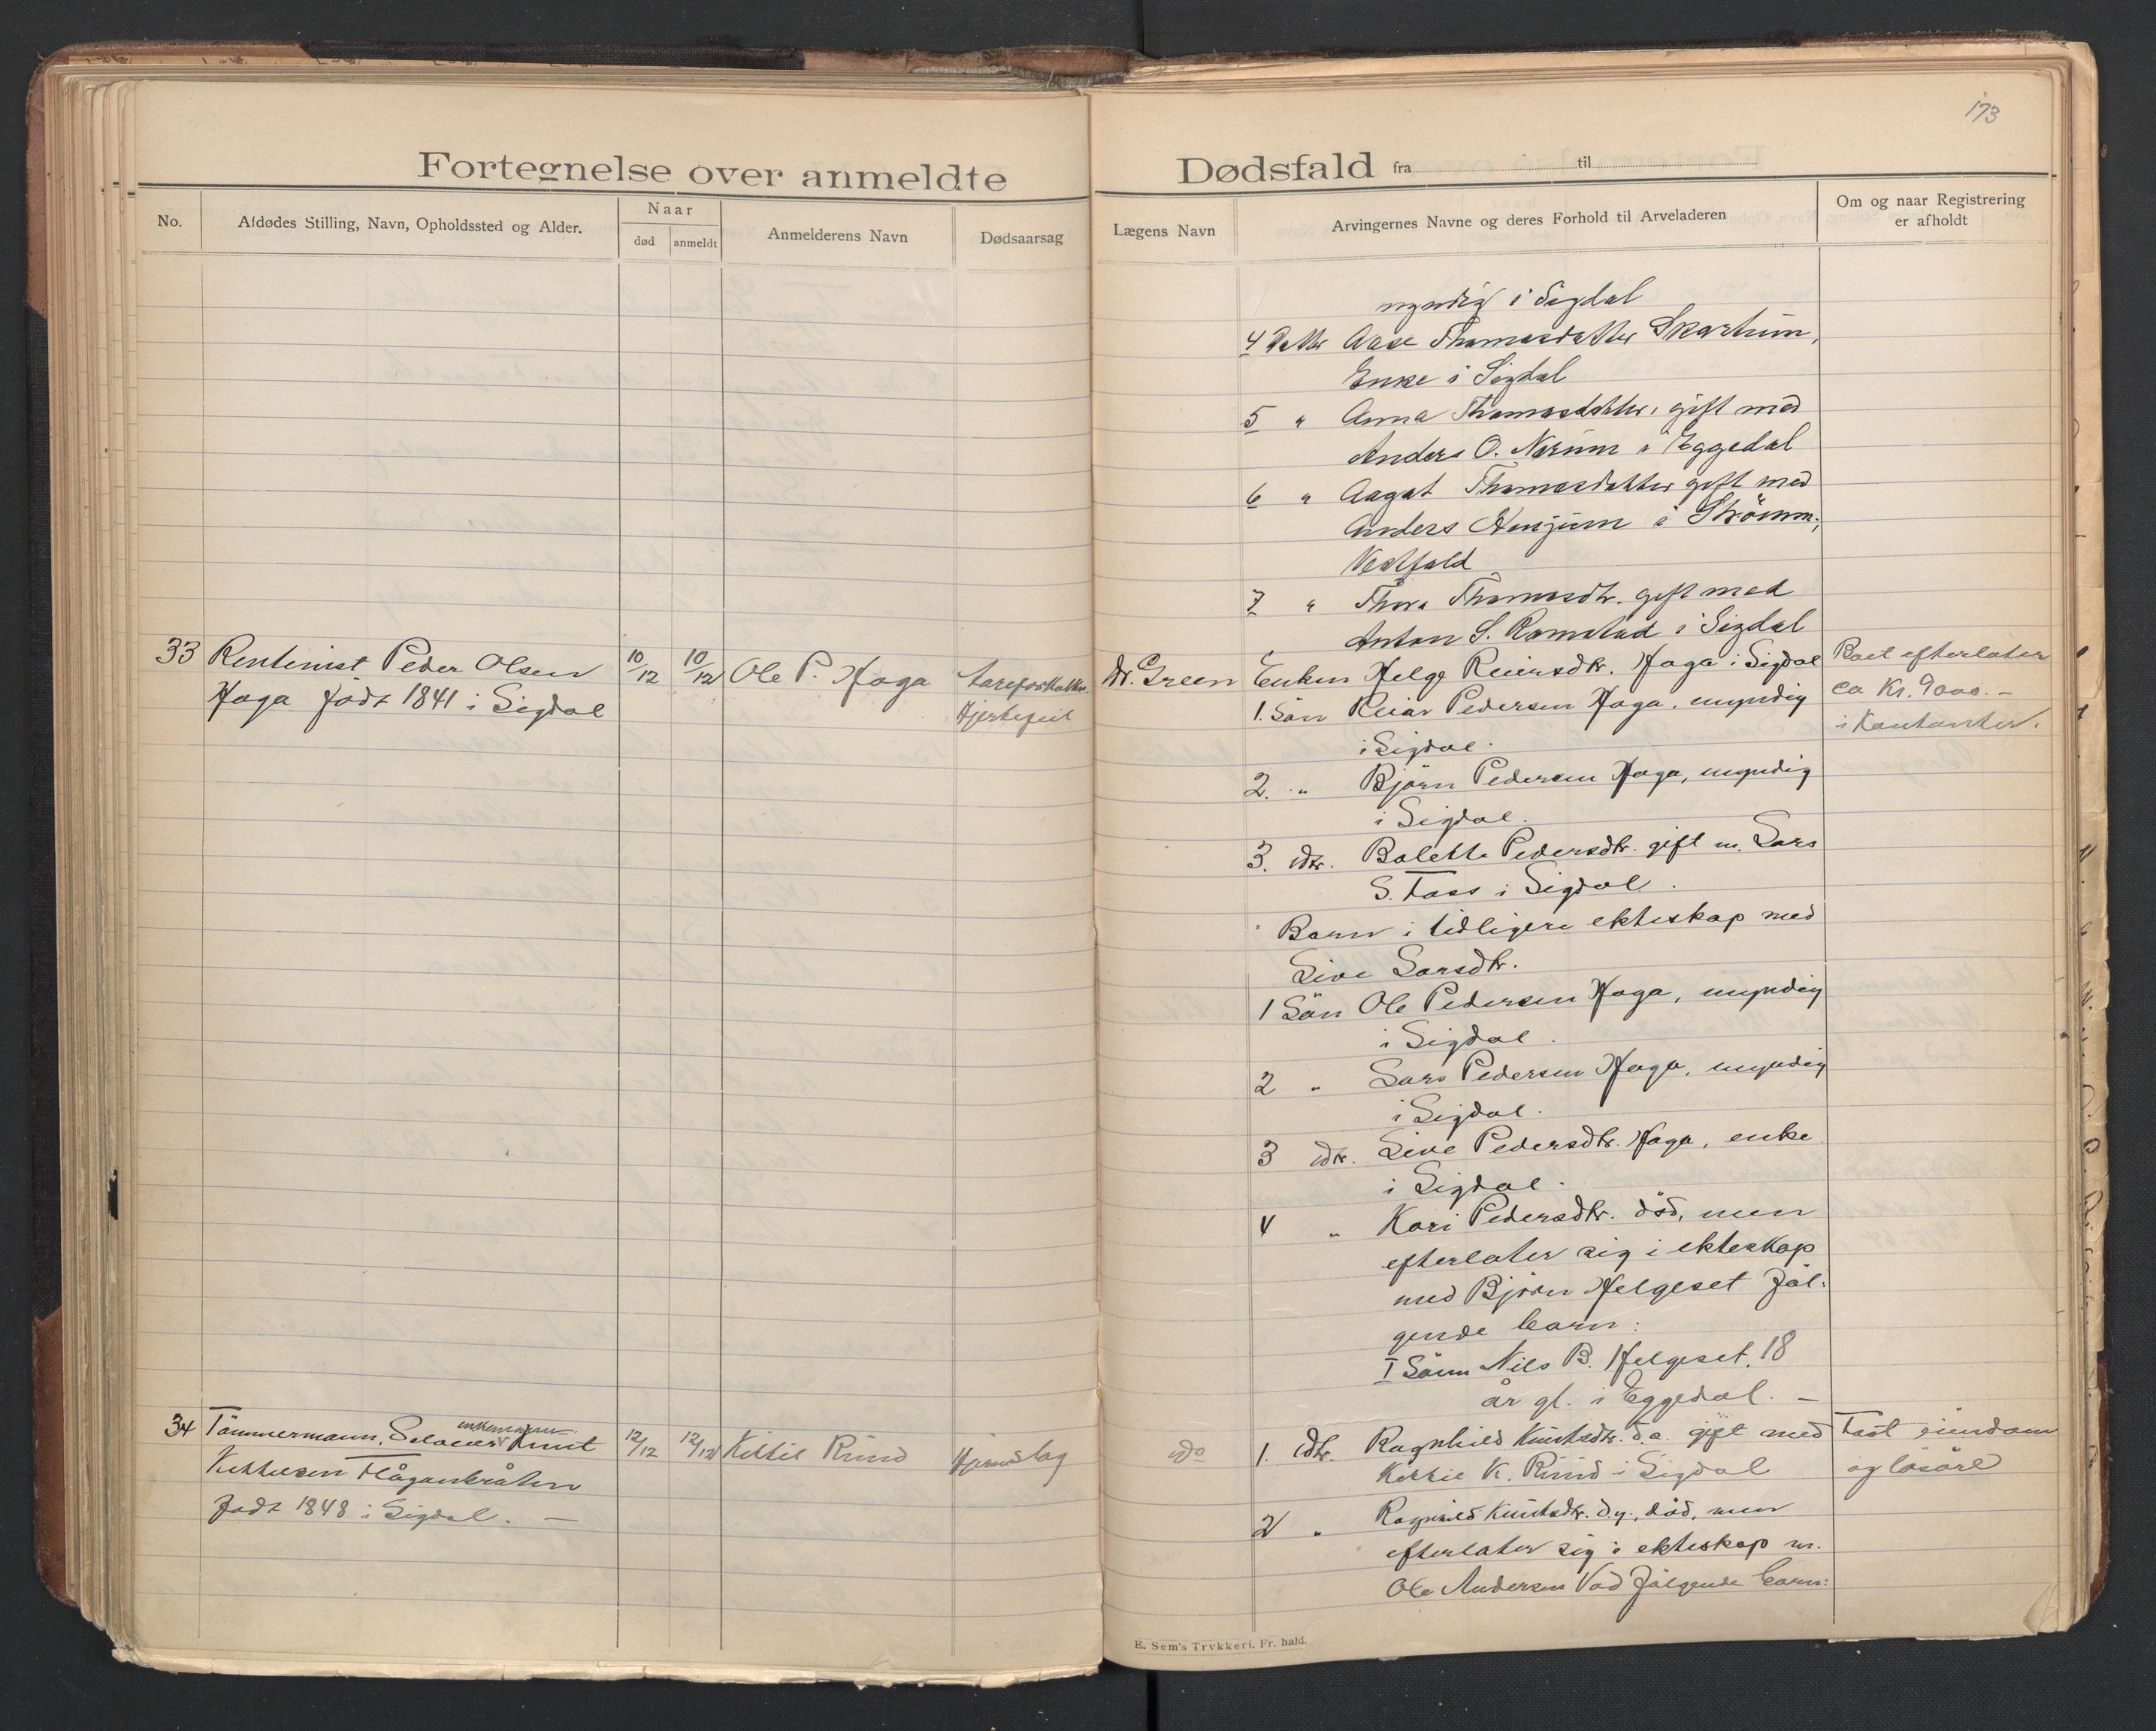 173
Fortegnelse over anmeldte Dødsfald fra til
No.
Afdødes Stilling, Navn, Opholdssted og Alder.
Naar
død
anmeldt
Anmelderens Navn
Dødsaarsag
Lægens Navn
Arvingernes Navne og deres Forhold til Arveladeren
Om og naar Registrering
er afholdt
myndig i Sigdal
4 Datter Aase Thomasdatter Skartum,
Enke i Sigdal
5 " Anna Thomasdatter, gift med
Anders O. Nerum i Eggedal
6 " Aagot Thomasdatter gift med
Anders i Strömm,
Vestfold
7 " Thora Thomasdtr. gift med
Anton S. Ramstad i Sigdal
33 Rentenist Peder Olsen
Haga født 1841 i Sigdal
10/12
10/12
Ole P. Haga
Aareforkalkn.
Hjertefeil
dr. Green
Enken Helge Reiersdtr. Haga i Sigdal
1. Sön Reiar Pedersen Haga, myndig
i Sigdal.
2. " Björn Pedersen Haga, myndig
i Sigdal.
3. dtr. Bolette Pedersdtr. gift m. Lars
S. Foss i Sigdal.
Barn i tidligere ekteskap med
Live Larsdtr.
1 Sön Ole Pedersen Haga, myndig
i Sigdal.
2 " Lars Pedersen Haga, myndig
i Sigdal.
3 dtr. Live Pedersdtr. Haga, enke
i Sigdal.
4 " Kari Pedersdtr. död, men
efterlater sig i ekteskap
med Björn Helgeset föl-
gende barn:
I Sönn Nils B. Helgeset, 18
år gl. i Eggedal. –
Boet efterlater
ca Kr. 9000.–
i Kontanter.
34 Tömmermann, enkemann Knut
Kittilsen Håganbråten
født 1848 i Sigdal. –
12/12
12/12
Kittil Rund
Hjerneslag
do
1. dtr. Ragnhild Knutsdtr. d.e. gift med
Kittil K. Rund i Sigdal
2 " Ragnhild Knutsdtr. d.y., död, men
efterlater sig i ekteskap m.
Ole Andersen Vad følgende barn:
Fast eiendom
og løsøre
E. Sem's Trykkeri. Fr. hald.